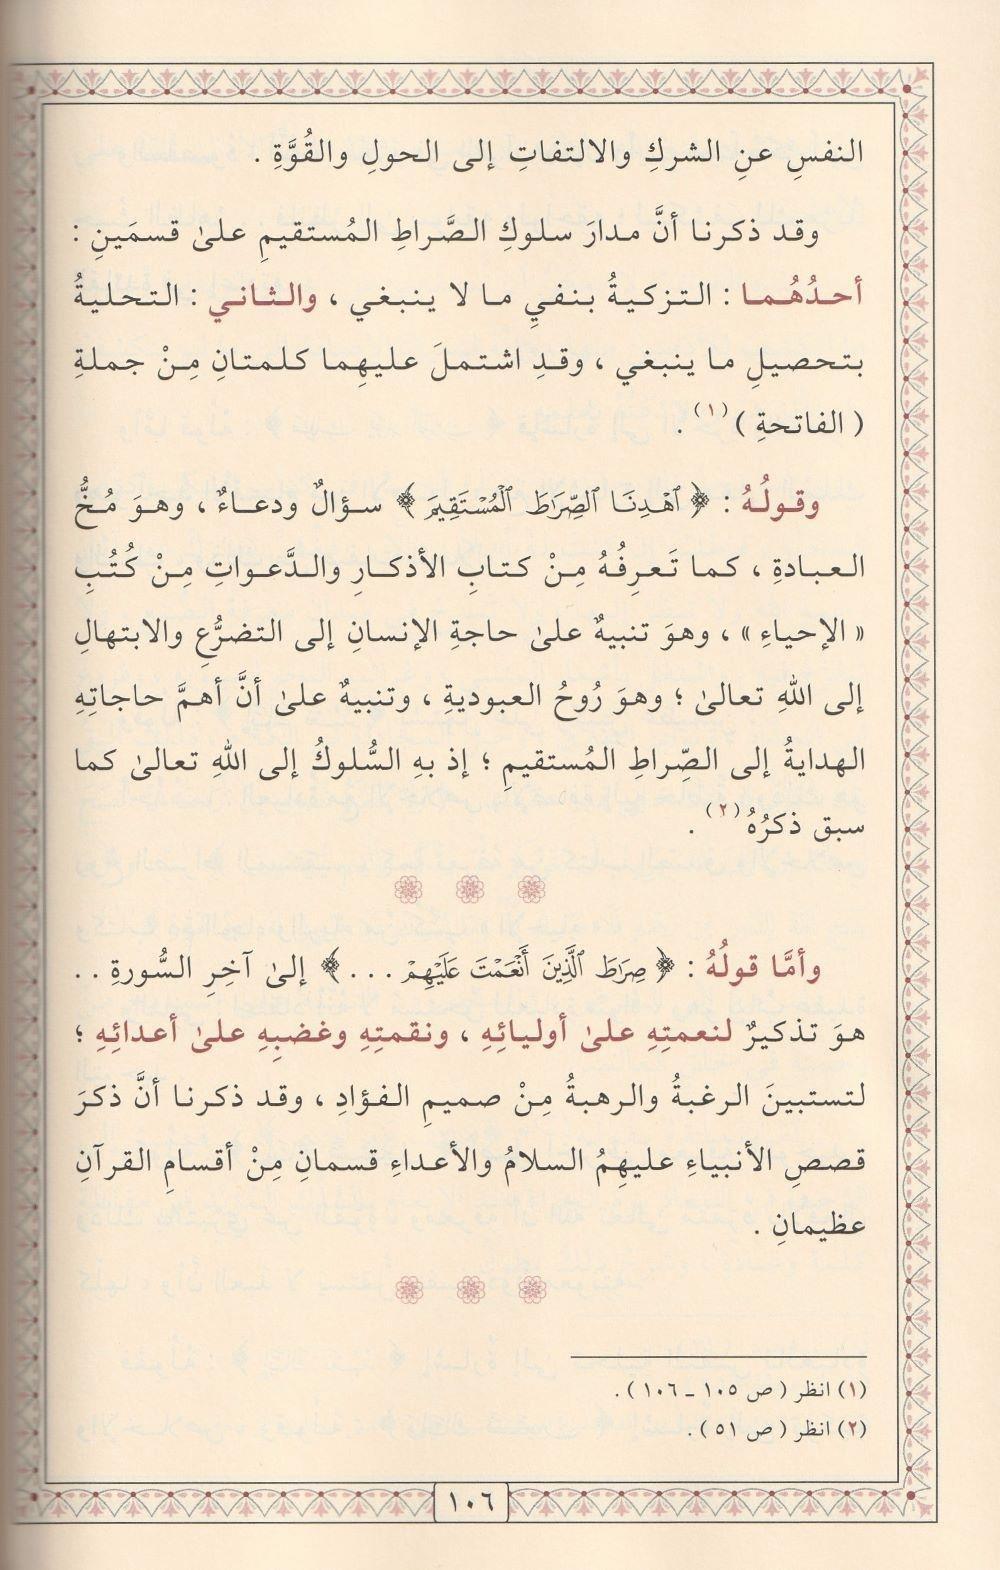 النفسِ عنِ الشركِ والالتفاتِ إلى الحولِ والقُوَّةِ .
وقد ذكرنا أنَّ مدارَ سلوكِ الصَّراطِ المُستقيمِ علىٰ قسمَينِ :
أحدُهُما : التزكيةُ بنفيِ ما لا ينبغي ، والثاني : التحليةُ
بتحصيلِ ما ينبغي ، وقدِ اشتملَ عليهِما كلمتانِ مِنْ جملةِ
( الفاتحةِ )(١) .
وقولُهُ : ﴿ ٱهْدِنَا ٱلصِّرَٰطَ ٱلْمُسْتَقِيمَ ﴾ سؤالٌ ودعاءٌ ، وهوَ مُخُّ
العبادةِ ، كما تَعرِفُهُ مِنْ كتابِ الأذكارِ والدَّعواتِ مِنْ كُتُبِ
« الإحياءِ » ، وهوَ تنبيهٌ علىٰ حاجةِ الإنسانِ إلى التضرُّعِ والابتهالِ
إلى اللهِ تعالىٰ ؛ وهوَ رُوحُ العبوديةِ ، وتنبيهٌ علىٰ أنَّ أهمَّ حاجاتِهِ
الهدايةُ إلى الصِّراطِ المُستقيمِ ؛ إذ بهِ السُّلوكُ إلى اللهِ تعالىٰ كما
سبق ذكرُهُ(٢) .
وأمَّا قولُهُ : ﴿ صِرَٰطَ ٱلَّذِينَ أَنْعَمْتَ عَلَيْهِمْ ... ﴾ إلىٰ آخِرِ السُّورةِ ..
هوَ تذكيرٌ لنعمتِهِ علىٰ أوليائِهِ ، ونقمتِهِ وغضبِهِ علىٰ أعدائِهِ ؛
لتستبينَ الرغبةُ والرهبةُ مِنْ صميمِ الفؤادِ ، وقد ذكرنا أنَّ ذكرَ
قصصِ الأنبياءِ عليهِمُ السلامُ والأعداءِ قسمانِ مِنْ أقسامِ القرآنِ
عظيمانِ .
(١) انظر ( ص ١٠٥ ـ ١٠٦ ) .
(٢) انظر ( ص ٥١ ) .
١٠٦